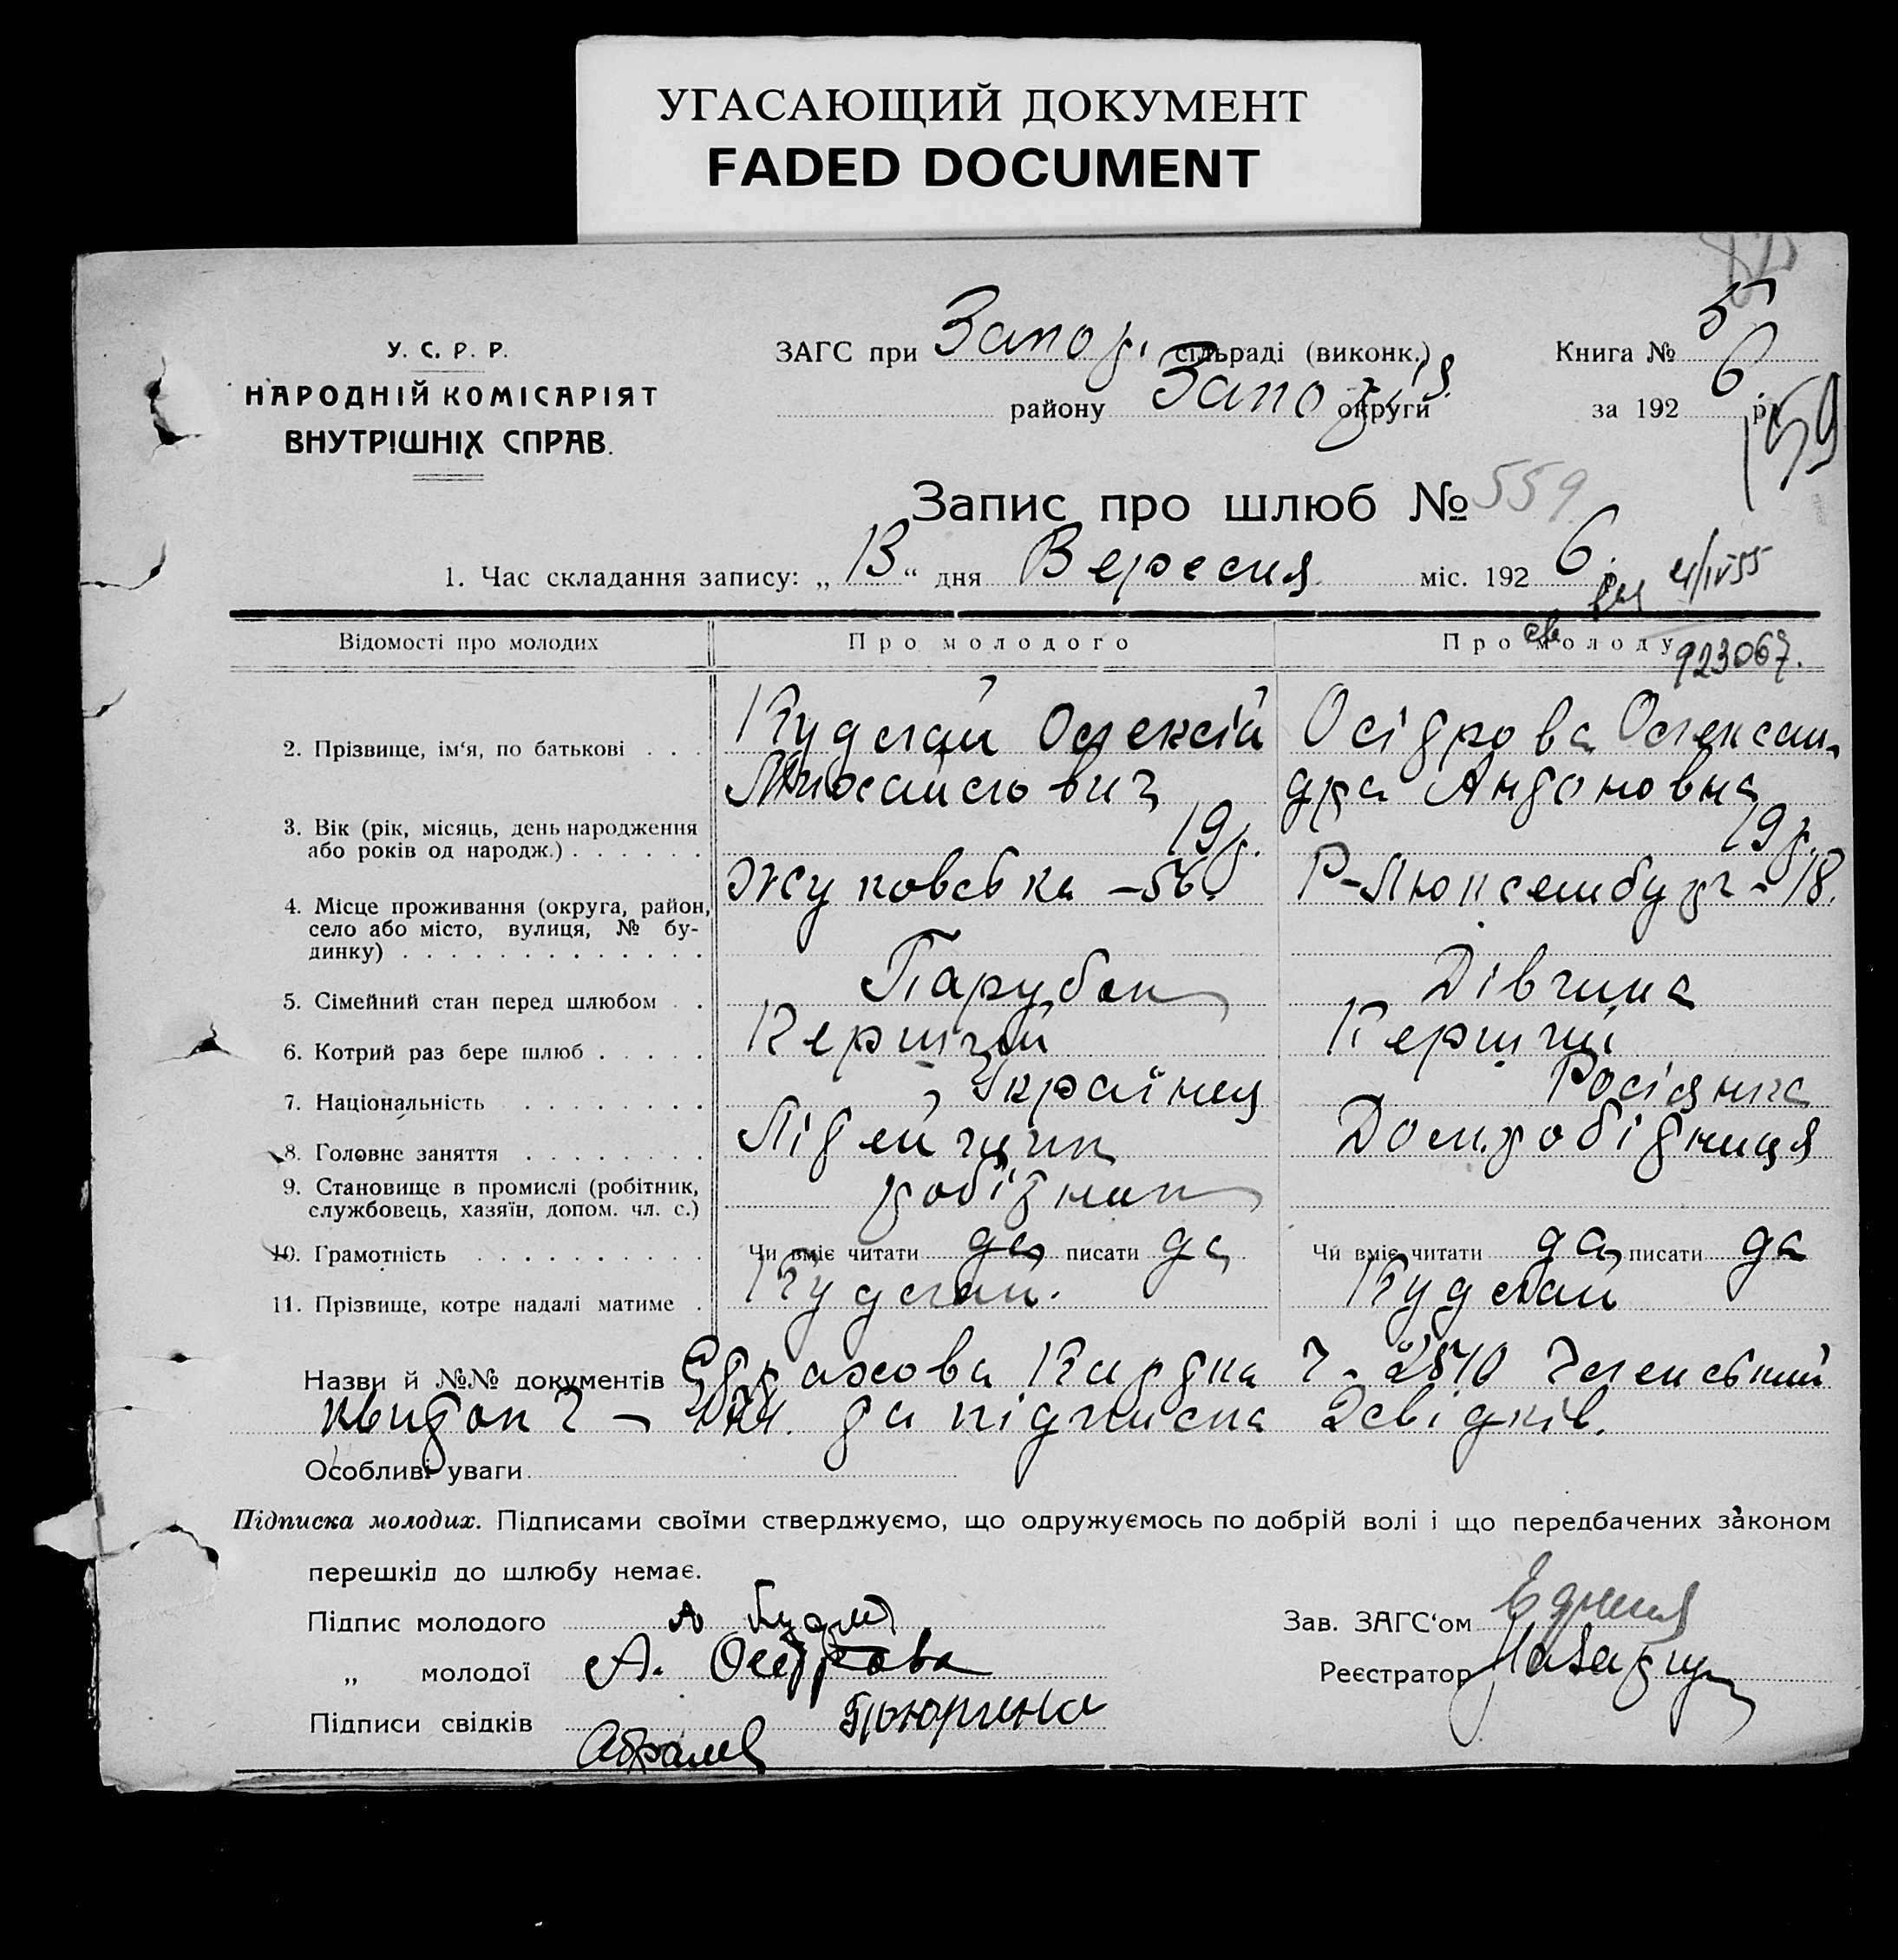 УГАСАЮЩИЙ ДОКУМЕНТ
FADED DOCUMENT
У. С. Р. Р.
НАРОДНІЙ КОМІСАРІЯТ
ВНУТРІШНІХ СПРАВ.
ЗАГС при Запор. сільраді (виконк.)
району Запоріз. округи
Книга № 5
за 1926 р.
159
Запис про шлюб № 559
1. Час складання запису: „13“ дня Вересня міс. 1926 р.
4/IV 55
св
923067.
Відомості про молодих
Про молодого
Про молоду
2. Прізвище, ім‘я, по батькові . . . Кудлай Олексій Осітрова Олексан-
Михайлович дра Антоновна
3. Вік (рік, місяць, день народження 19 р. 19 р.
або років од народж.) . . . . . .
4. Місце проживання (округа, район, Жуковська – 56. Р-Люксембург – 18.
село або місто, вулиця, № бу-
динку) . . . . . . . . . . . . .
5. Сімейний стан перед шлюбом . . Парубок Дівчина
6. Котрий раз бере шлюб . . . . . Перший Перший
7. Національність . . . . . . . . Українец Росіянка
8. Головне заняття . . . . . . . . Літейщик Дом.робітниця
9. Становище в промислі (робітник, робітник
службовець, хазяїн, допом. чл. с.)
10. Грамотність . . . . . . . . . . Чи вміє читати да писати да Чи вміє читати да писати да
11. Прізвище, котре надалі матиме . Кудлай. Кудлай
Назви й №№ документів Страхова Картка Ч - 2810 Членський
квиток Ч – та підписка 2 свідків.
Особливі уваги
Підписка молодих. Підписами своїми стверджуємо, що одружуємось по добрій волі і що передбачених законом
перешкід до шлюбу немає.
Підпис молодого А Кудлай
„ молодої А. Осітрова
Підписи свідків
Зав. ЗАГС‘ом
Реєстратор